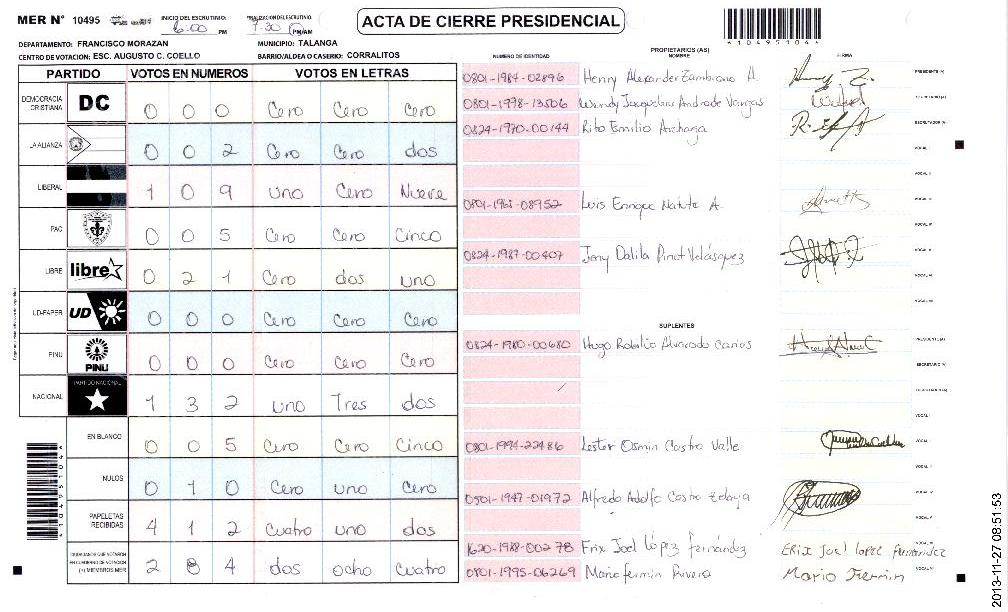 MER N° 10495 INICIO DEL ESCRUTINIO: 6:00 PM 7:30 PM/AM
ACTA DE CIERRE PRESIDENCIAL
*104951064*
DEPARTAMENTO: FRANCISCO MORAZAN MUNICIPIO: TALANGA
CENTRO DE VOTACION: ESC. AUGUSTO C. COELLO BARRIO/ALDEA O CASERIO: CORRALITOS
PARTIDO VOTOS EN NUMEROS VOTOS EN LETRAS
DEMOCRACIA CRISTIANA DC 0 0 0 Cero Cero Cero
LA ALIANZA 0 0 2 Cero Cero dos
LIBERAL 1 0 9 uno Cero Nueve
PAC 0 0 5 Cero Cero Cinco
LIBRE libre 0 2 1 Cero dos uno
UD-FAPER UD 0 0 0 Cero Cero Cero
PINU PINU 0 0 0 Cero Cero Cero
NACIONAL PARTIDO NACIONAL 1 3 2 uno Tres dos
EN BLANCO 0 0 5 Cero Cero Cinco
NULOS 0 1 0 Cero uno Cero
PAPELETAS RECIBIDAS 4 1 2 Cuatro uno dos
CIUDADANOS QUE VOTARON EN CUADERNO DE VOTACION (+) MIEMBROS MER 2 8 4 dos ocho Cuatro
PROPIETARIOS (AS)
NUMERO DE IDENTIDAD NOMBRE FIRMA
0801-1984-02896 Henry Alexander Zambrano A. PRESIDENTE (A)
0801-1978-13506 Wendy Jacqueline Andrade Vargas SECRETARIO (A)
0824-1970-00144 Rito Emilio ESCRUTADOR (A)
VOCAL I
VOCAL II
0801-1965-08952 Luis Enrique A. VOCAL III
VOCAL IV
0824-1987-00407 Jeny Dalila Velásquez VOCAL V
VOCAL VI
VOCAL VII
SUPLENTES
0824-1980-00680 Hugo Alvarado PRESIDENTE (A)
SECRETARIO (A)
ESCRUTADOR (A)
VOCAL I
0801-1994-22486 Lester Osmin Castro Valle VOCAL II
VOCAL III
0501-1947-01972 Alfredo Adolfo Castro Zelaya VOCAL IV
VOCAL V
1620-1988-00278 Erix Joel López Fernández Erix Joel lopez Fernandez
0801-1995-06269 Mario Fermin Rivera Mario Fermin
2013-11-27 08:51:53